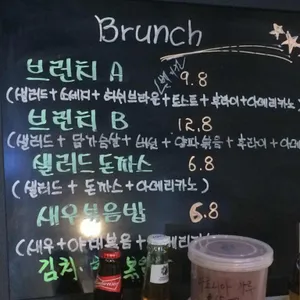 Brunch
브런치 A 9.8
(샐러드 + 소세지 + 허쉬브라운 + 토스트 + 후라이 + 아메리카노)
브런치 B 12.8
(샐러드 + 닭가슴살 + + 후라이 + 아메리
샐러드 돈까스 6.8
(샐러드 + 돈까스 + 아메리카노)
새우볶음밥 6.8
(새우 + 야채볶음 + 아메리
김치
Budweiser